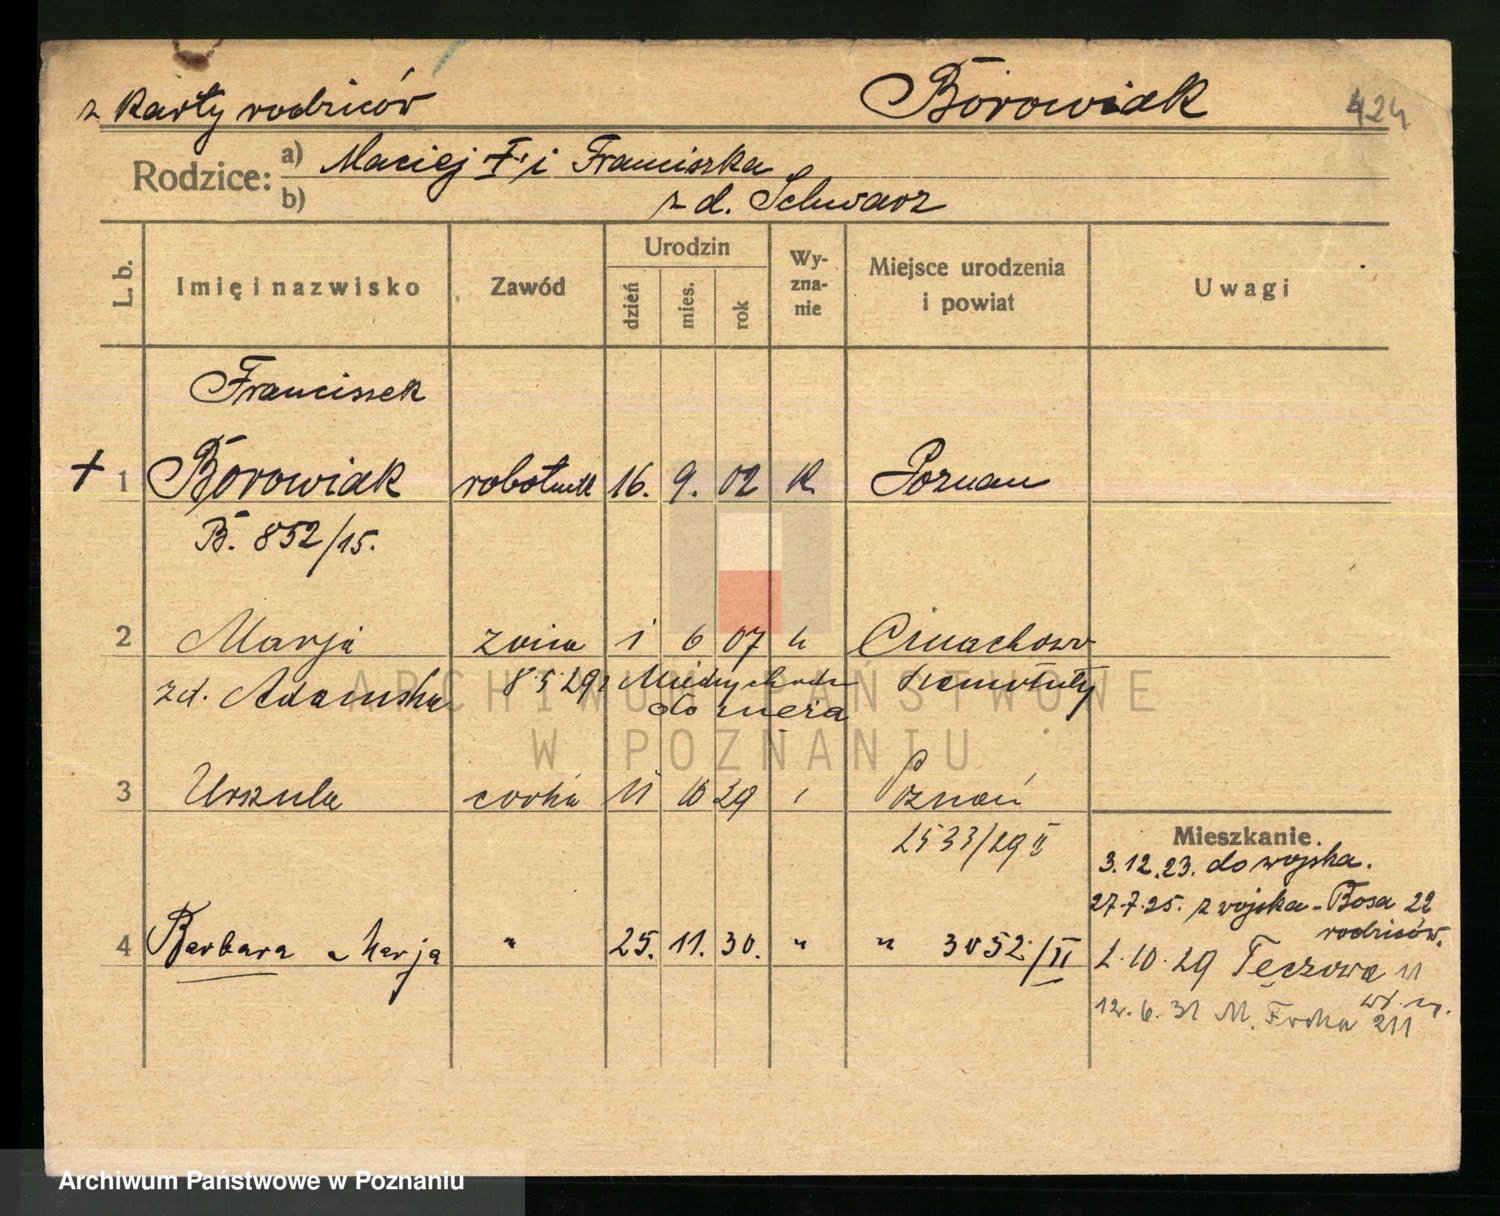 z karty rodziców Borowiak 424
Rodzice: a) Maciej i Franciszka
b) z d. Schwarz
L. b. Imię i nazwisko Zawód Urodzin dzień mies. rok Wy-zna-nie Miejsce urodzenia i powiat Uwagi
Franciszek
+ 1 Borowiak robotnik 16. 9. 02 K Poznan
B. 852/15.
2 Marja żona 1 6 07 k Cmachowo
z d. Adamska 8 5 29 Międzychodu Szamotuły
do męża
ARCHIWUM PAŃSTWOWE
W POZNANIU
3 Urszula córka 11 10 29 Poznań
2533/29 II
Mieszkanie.
3.12.23. do wojska.
27.7.25. z wojska - Bosa 22
rodziców.
4 Barbara Marja " 25. 11. 30. " " 3052/II
2.10.29 Tęczowa 11
12.6.31 M. Focha 211
Archiwum Państwowe w Poznaniu